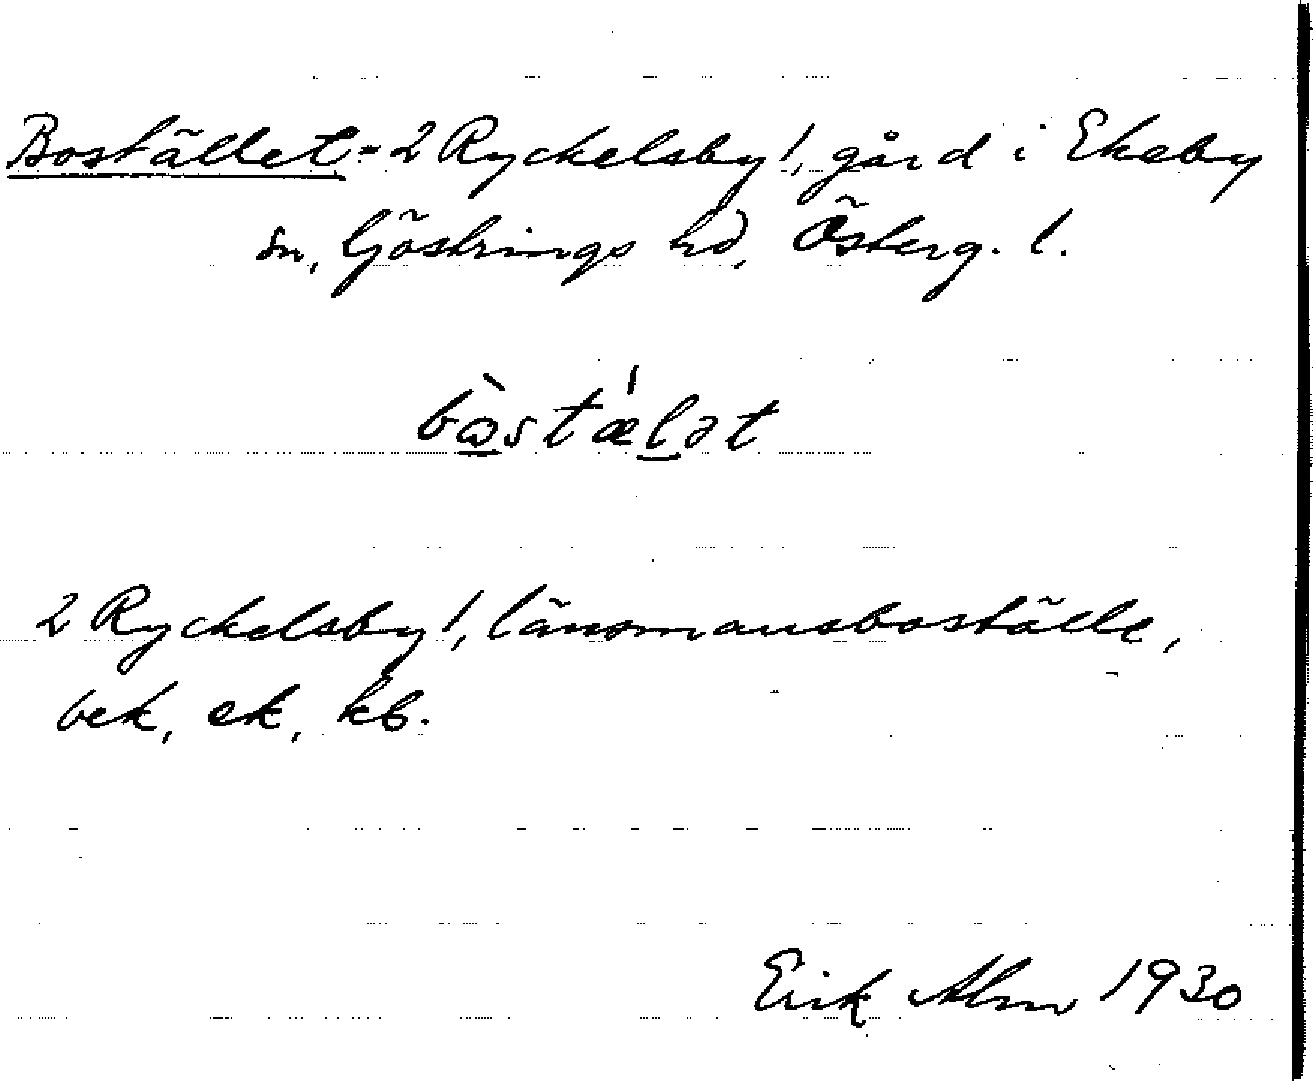 Bostället = 2 Ryckelsby 1, gård i Ekeby
sn, Göstrings hd, Österg. l.
bòstǽlət
2 Ryckelsby 1, länsmansboställe,
bek, ek, kb.
Erik Alm 1930